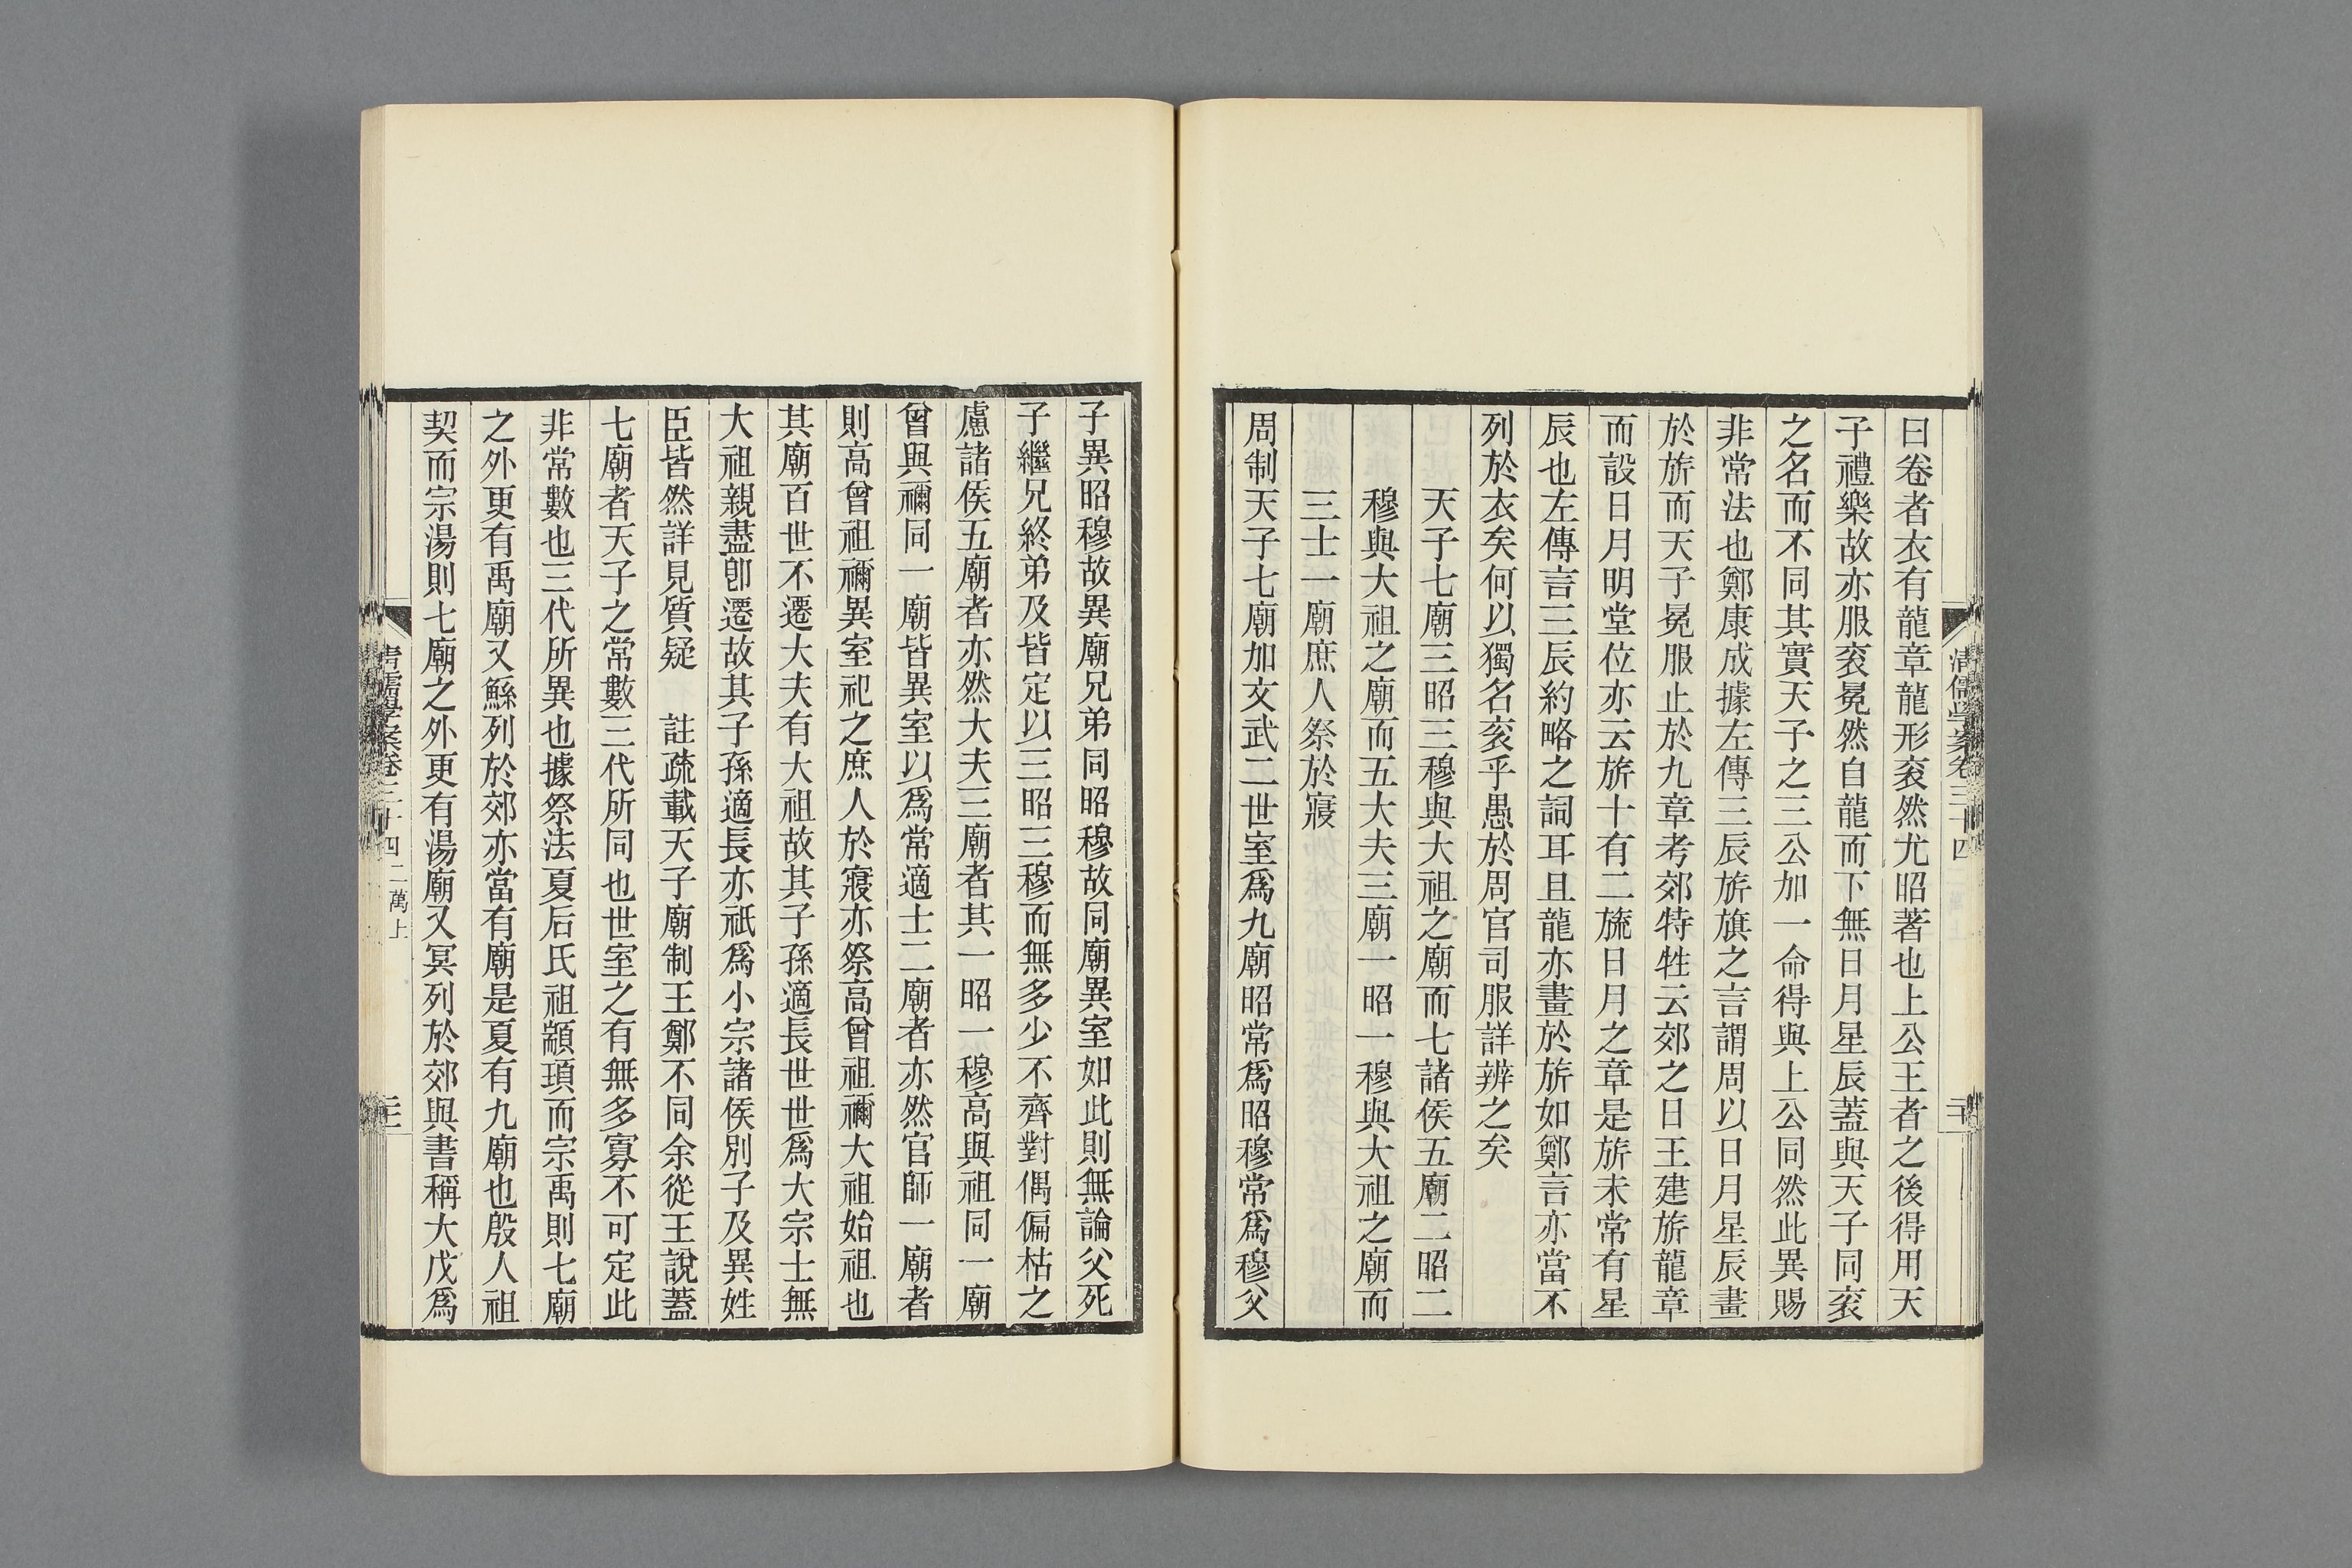 曰卷者衣有龍章龍形袞然尤昭著也上公王者之後得用天
子禮樂故亦服袞冕然自龍而下無日月星辰蓋與天子同袞
之名而不同其實天子之三公加一命得與上公同然此異賜
非常法也鄭康成據左傳三辰旂旗之言謂周以日月星辰畫
於旂而天子冕服止於九章考郊特牲云郊之日王建旂龍章
而設日月明堂位亦云旂十有二旒日月之章是旂未常有星
辰也左傳言三辰約略之詞耳且龍亦畫於旂如鄭言亦當不
列於衣矣何以獨名袞乎愚於周官司服詳辨之矣
天子七廟三昭三穆與大祖之廟而七諸侯五廟二昭二
穆與大祖之廟而五大夫三廟一昭一穆與大祖之廟而
三士一廟庶人祭於寢
周制天子七廟加文武二世室爲九廟昭常爲昭穆常爲穆父
子異昭穆故異廟兄弟同昭穆故同廟異室如此則無論父死
子繼兄終弟及皆定以三昭三穆而無多少不齊對偶偏枯之
慮諸侯五廟者亦然大夫三廟者其一昭一穆高與祖同一廟
曾與禰同一廟皆異室以爲常適士二廟者亦然官師一廟者
則高曾祖禰異室祀之庶人於寢亦祭高曾祖禰大祖始祖也
其廟百世不遷大夫有大祖故其子孫適長世世爲大宗士無
大祖親盡卽遷故其子孫適長亦祇爲小宗諸侯別子及異姓
臣皆然詳見質疑　註疏載天子廟制王鄭不同余從王說蓋
七廟者天子之常數三代所同也世室之有無多寡不可定此
非常數也三代所異也據祭法夏后氏祖顓頊而宗禹則七廟
之外更有禹廟又鯀列於郊亦當有廟是夏有九廟也殷人祖
契而宗湯則七廟之外更有湯廟又冥列於郊與書稱大戊爲
清儒學案卷三十四二萬上